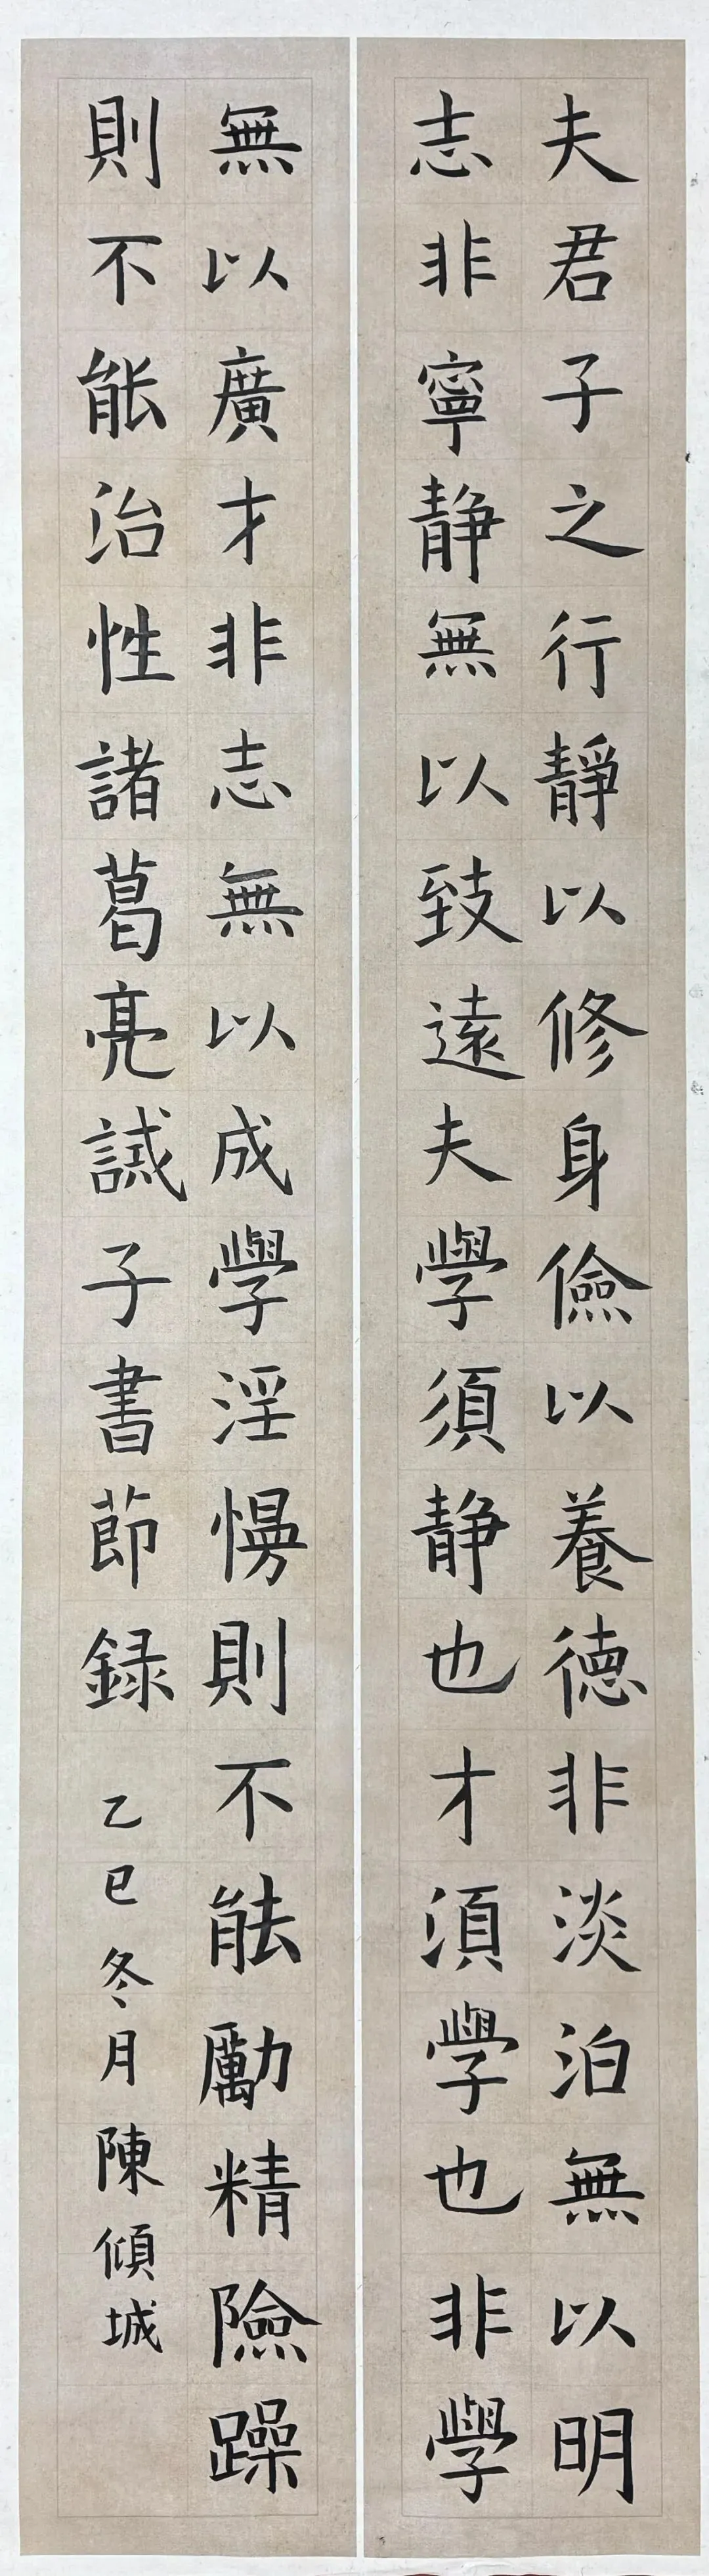 夫君子之行靜以修身儉以養德非淡泊無以明
志非寧静無以致遠夫學須静也才須學也非學
無以廣才非志無以成學淫慢則不能勵精險躁
則不能治性諸葛亮誡子書節録
乙巳冬月陳傾城